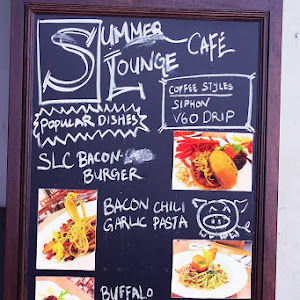 SUMMER
LOUNGE CAFÉ
COFFEE STYLES
SIPHON
V60 DRIP
POPULAR DISHES
SLC BACON-
BURGER
BACON CHILI
GARLIC PASTA
BUFFALO